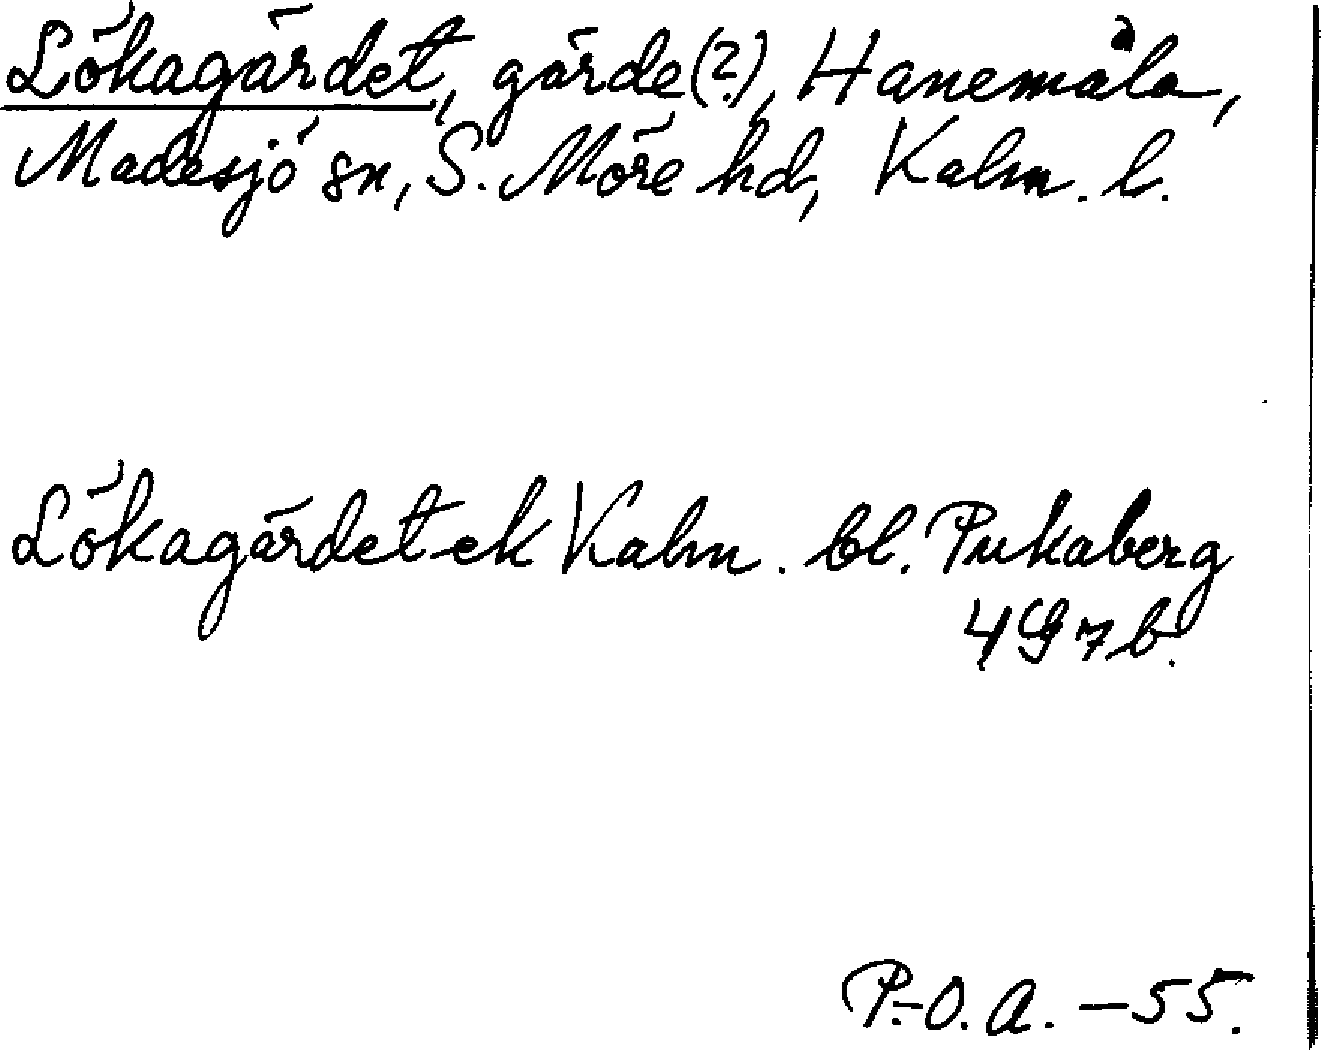 Lökagärdet, gärde(?), Hanemåla,
Madesjö sn, S. Möre hd, Kalm. l.
Lökagärdet ek Kalm. bl. Pukaberg
4G7b.
P.-O.A. -55.